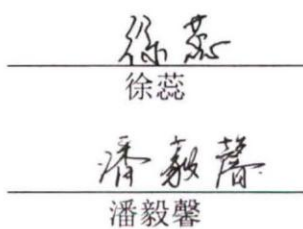 徐蕊
徐蕊
潘毅馨
潘毅馨